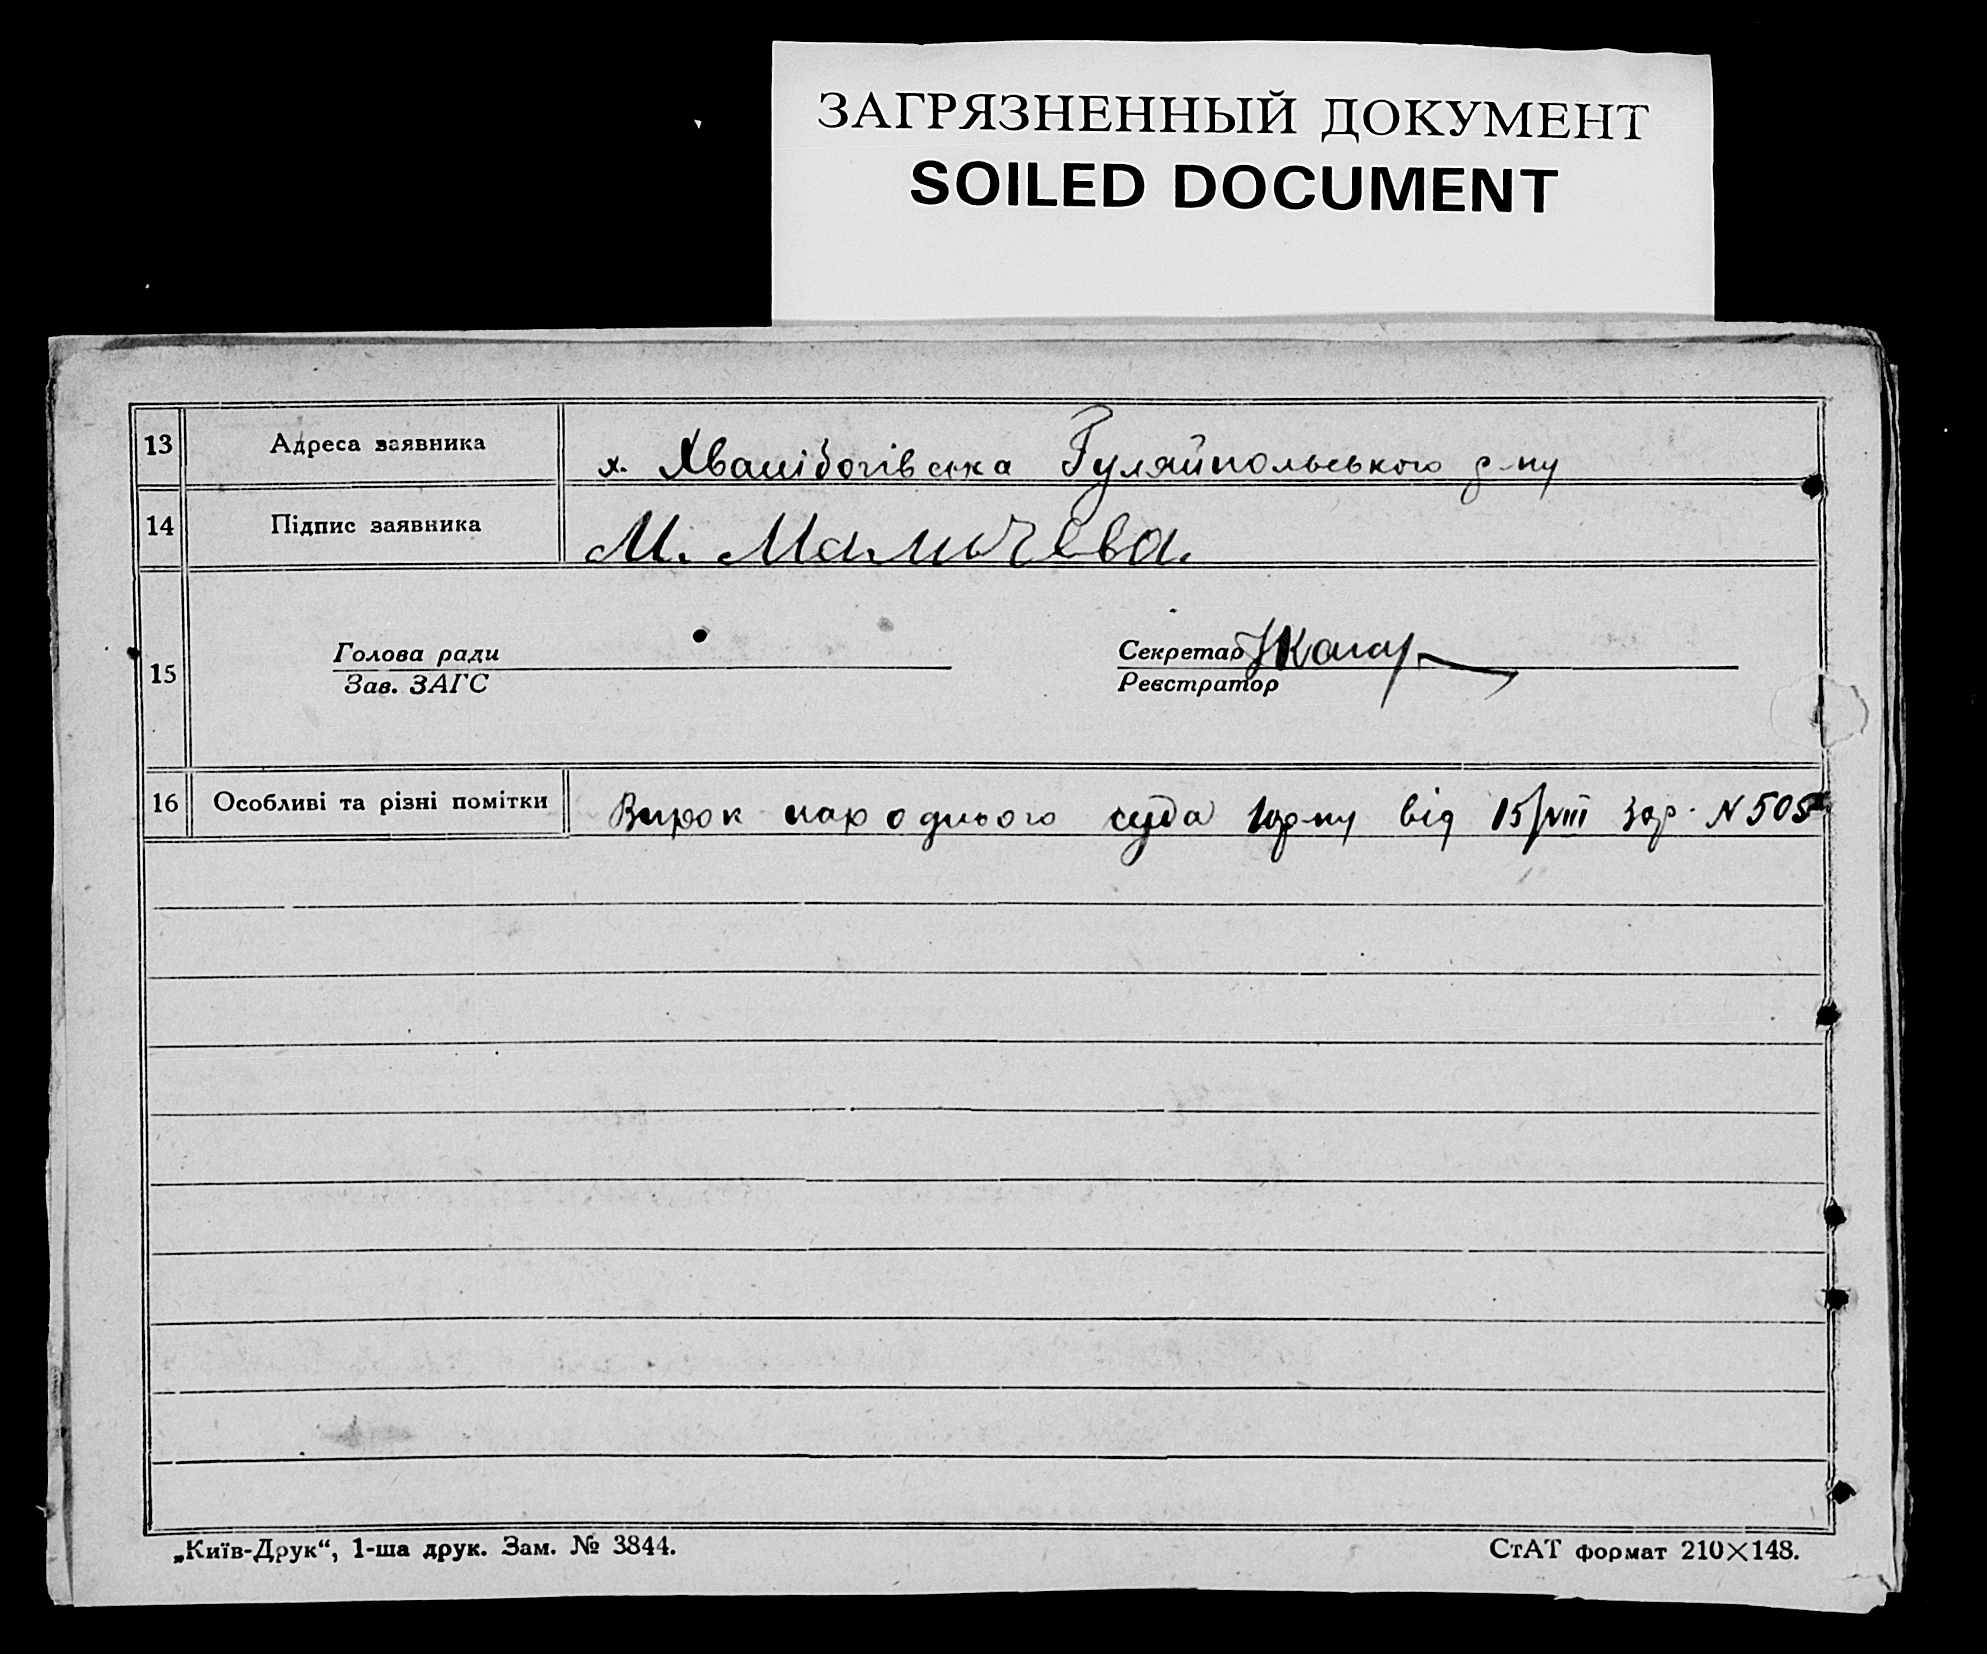 ЗАГРЯЗНЕННЫЙ ДОКУМЕНТ
SOILED DOCUMENT
13 Адреса заявника х. Хвалібогівська Гуляйпольського р-ну
14 Підпис заявника М. Мамичева.
15 Голова ради
Зав. ЗАГС
Секретар
Реєстратор
16 Особливі та різні помітки Вирок народнього суда від 15/VIII N 505
„Київ-Друк“, 1-ша друк. Зам. № 3844.
СтАТ формат 210×148.